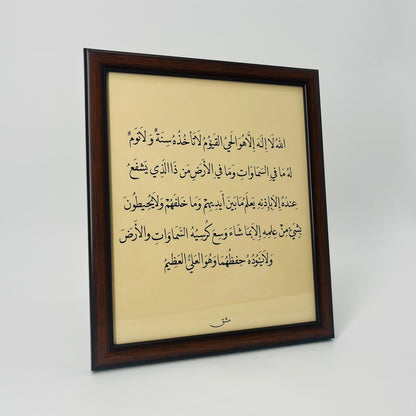 اللهُ لَا إِلَهَ إِلَّا هُوَ الْحَيُّ الْقَيُّومُ لَا تَأْخُذُهُ سِنَةٌ وَلَا نَوْمٌ
لَهُ مَا فِي السَّمَاوَاتِ وَمَا فِي الْأَرْضِ مَن ذَا الَّذِي يَشْفَعُ
عِندَهُ إِلَّا بِإِذْنِهِ يَعْلَمُ مَا بَيْنَ أَيْدِيهِمْ وَمَا خَلْفَهُمْ وَلَا يُحِيطُونَ
بِشَيْءٍ مِّنْ عِلْمِهِ إِلَّا بِمَا شَاءَ وَسِعَ كُرْسِيُّهُ السَّمَاوَاتِ وَالْأَرْضَ
وَلَا يَئُودُهُ حِفْظُهُمَا وَهُوَ الْعَلِيُّ الْعَظِيمُ
مشق